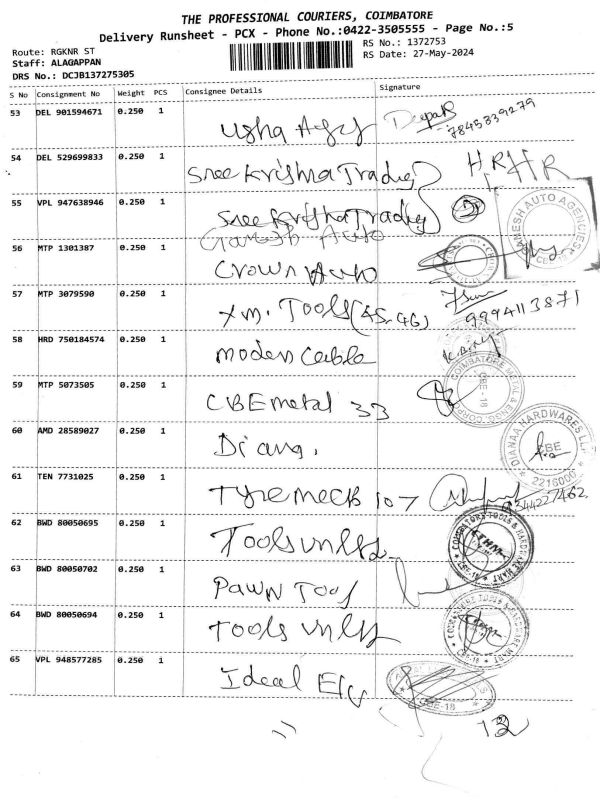 THE PROFESSIONAL COURIERS, COIMBATORE
Delivery Runsheet - PCX - Phone No.:0422-3505555 - Page No.:5
Route: RGKNR ST
RS No.: 1372753
Staff: ALAGAPPAN
RS Date: 27-May-2024
DRS No.: DCJB137275305
S No Consignment No Weight PCS Consignee Details Signature
53 DEL 901594671 0.250 1 Usha Deepak 7845839279
54 DEL 529699833 0.250 1 Sree Krishna Trading HR HR
55 VPL 947638946 0.250 1 Sree Krishna Trading
Ganesh Auto
56 MTP 1301387 0.250 1 Crown Auto
57 MTP 3079590 0.250 1 Tools 9994113871
58 HRD 750184574 0.250 1 modern Cable
59 MTP 5073505 0.250 1 CBE metal 33 CBE-18
60 AMD 28589027 0.250 1 DIANAA HARDWARES LLP CBE 2216000
61 TEN 7731025 0.250 1 107
62 BWD 80050695 0.250 1 Tools
63 BWD 80050702 0.250 1 Pawn Tool
64 BWD 80050694 0.250 1 Tools
65 VPL 948577285 0.250 1 Ideal CBE-18